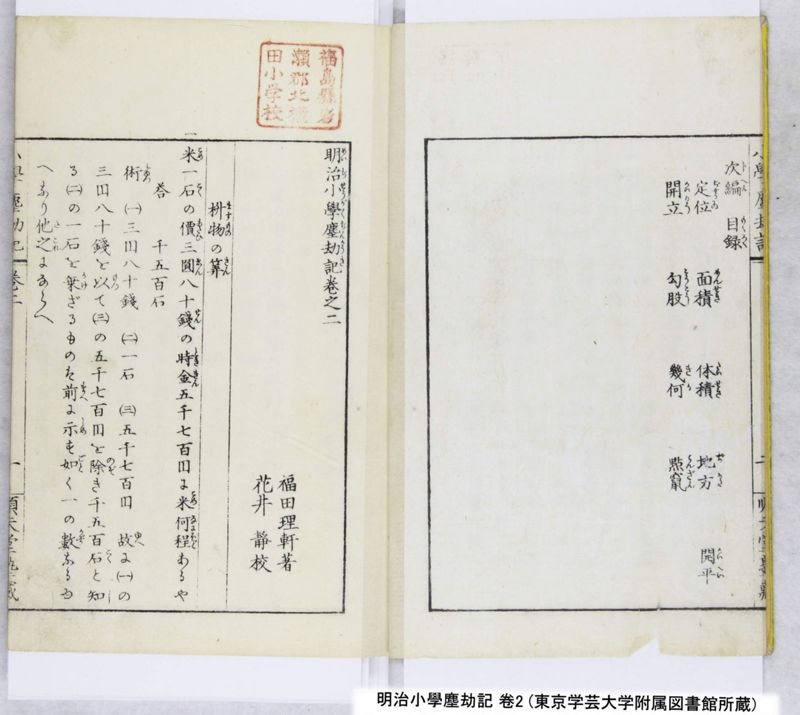 小學塵劫記
次編 目録
定位 面積 体積 地方 開平
開立 勾股 幾何 點竄
福島縣岩
瀬郡北横
田小学校
明治小學塵劫記卷之二
福田理軒著
花井 静校
枡物の算
一 米一石の價三圓八十錢の時金五千七百円に米何程あるや
答 千五百石
術 ㈠三円八十錢 ㈡一石 ㈢五千七百円 故に㈠の
三円八十錢を以て㈢の五千七百円を除き千五百石と知
る㈡の一石を乗ざるものは前に示す如く一の數なるゆ
へなり他之にならへ
小學塵劫記 卷二 一 順天堂塾藏
明治小學塵劫記 卷2 (東京学芸大学附属図書館所蔵)